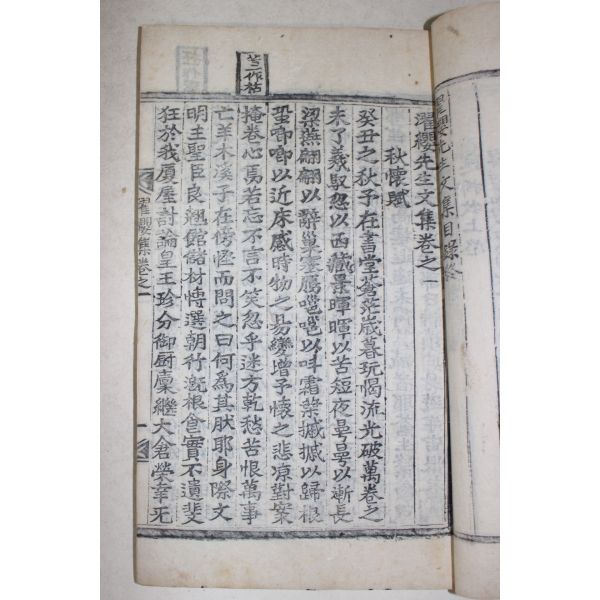 濯纓先生文集卷之一
秋懷賦
癸丑之秋予在書堂蒼茫歲暮玩愒流光破萬卷之
未了羲馭忽以西藏景暉暉以苦短夜曼曼以漸長
梁燕翩翩以辭巢塞鴈嗈嗈以叫霜葉摵摵以歸根
蛩喞喞以近床感時物之易變增予懷之悲凉對案
掩卷心焉若忘不言不笑忽乎迷方乾愁苦恨萬事
亡羊木溪子在傍恠而問之曰何爲其肰耶身際文
明主聖臣良翹館儲材愽選朝行漑根食實不遺斐
狂於我厦屋討論皇王珍分御厨廩繼大倉榮幸死
濯纓集卷之一
濯纓先生文集目錄終